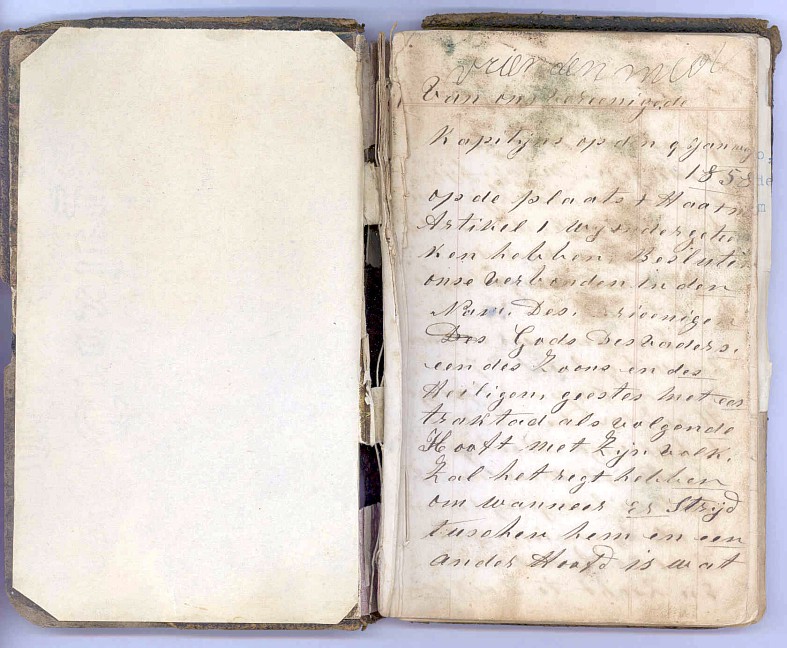 vrienden
Van ons vereenigde
Kapitijns op den 9 Januarij
1858
op de plaats Haarn
Artikel 1 Wij ondergete
ken hebben Besluten
onse verbonden in den
Naam Des Drieenige
Des Gods Desvaders,
een des Zoons en des
Heiligem geestes met een
traktad als volgende
Hooft met Zijn volk,
Zal het regt hebben
om wanneer er Strijd
tuschen hem en een
ander Hoofd is wat